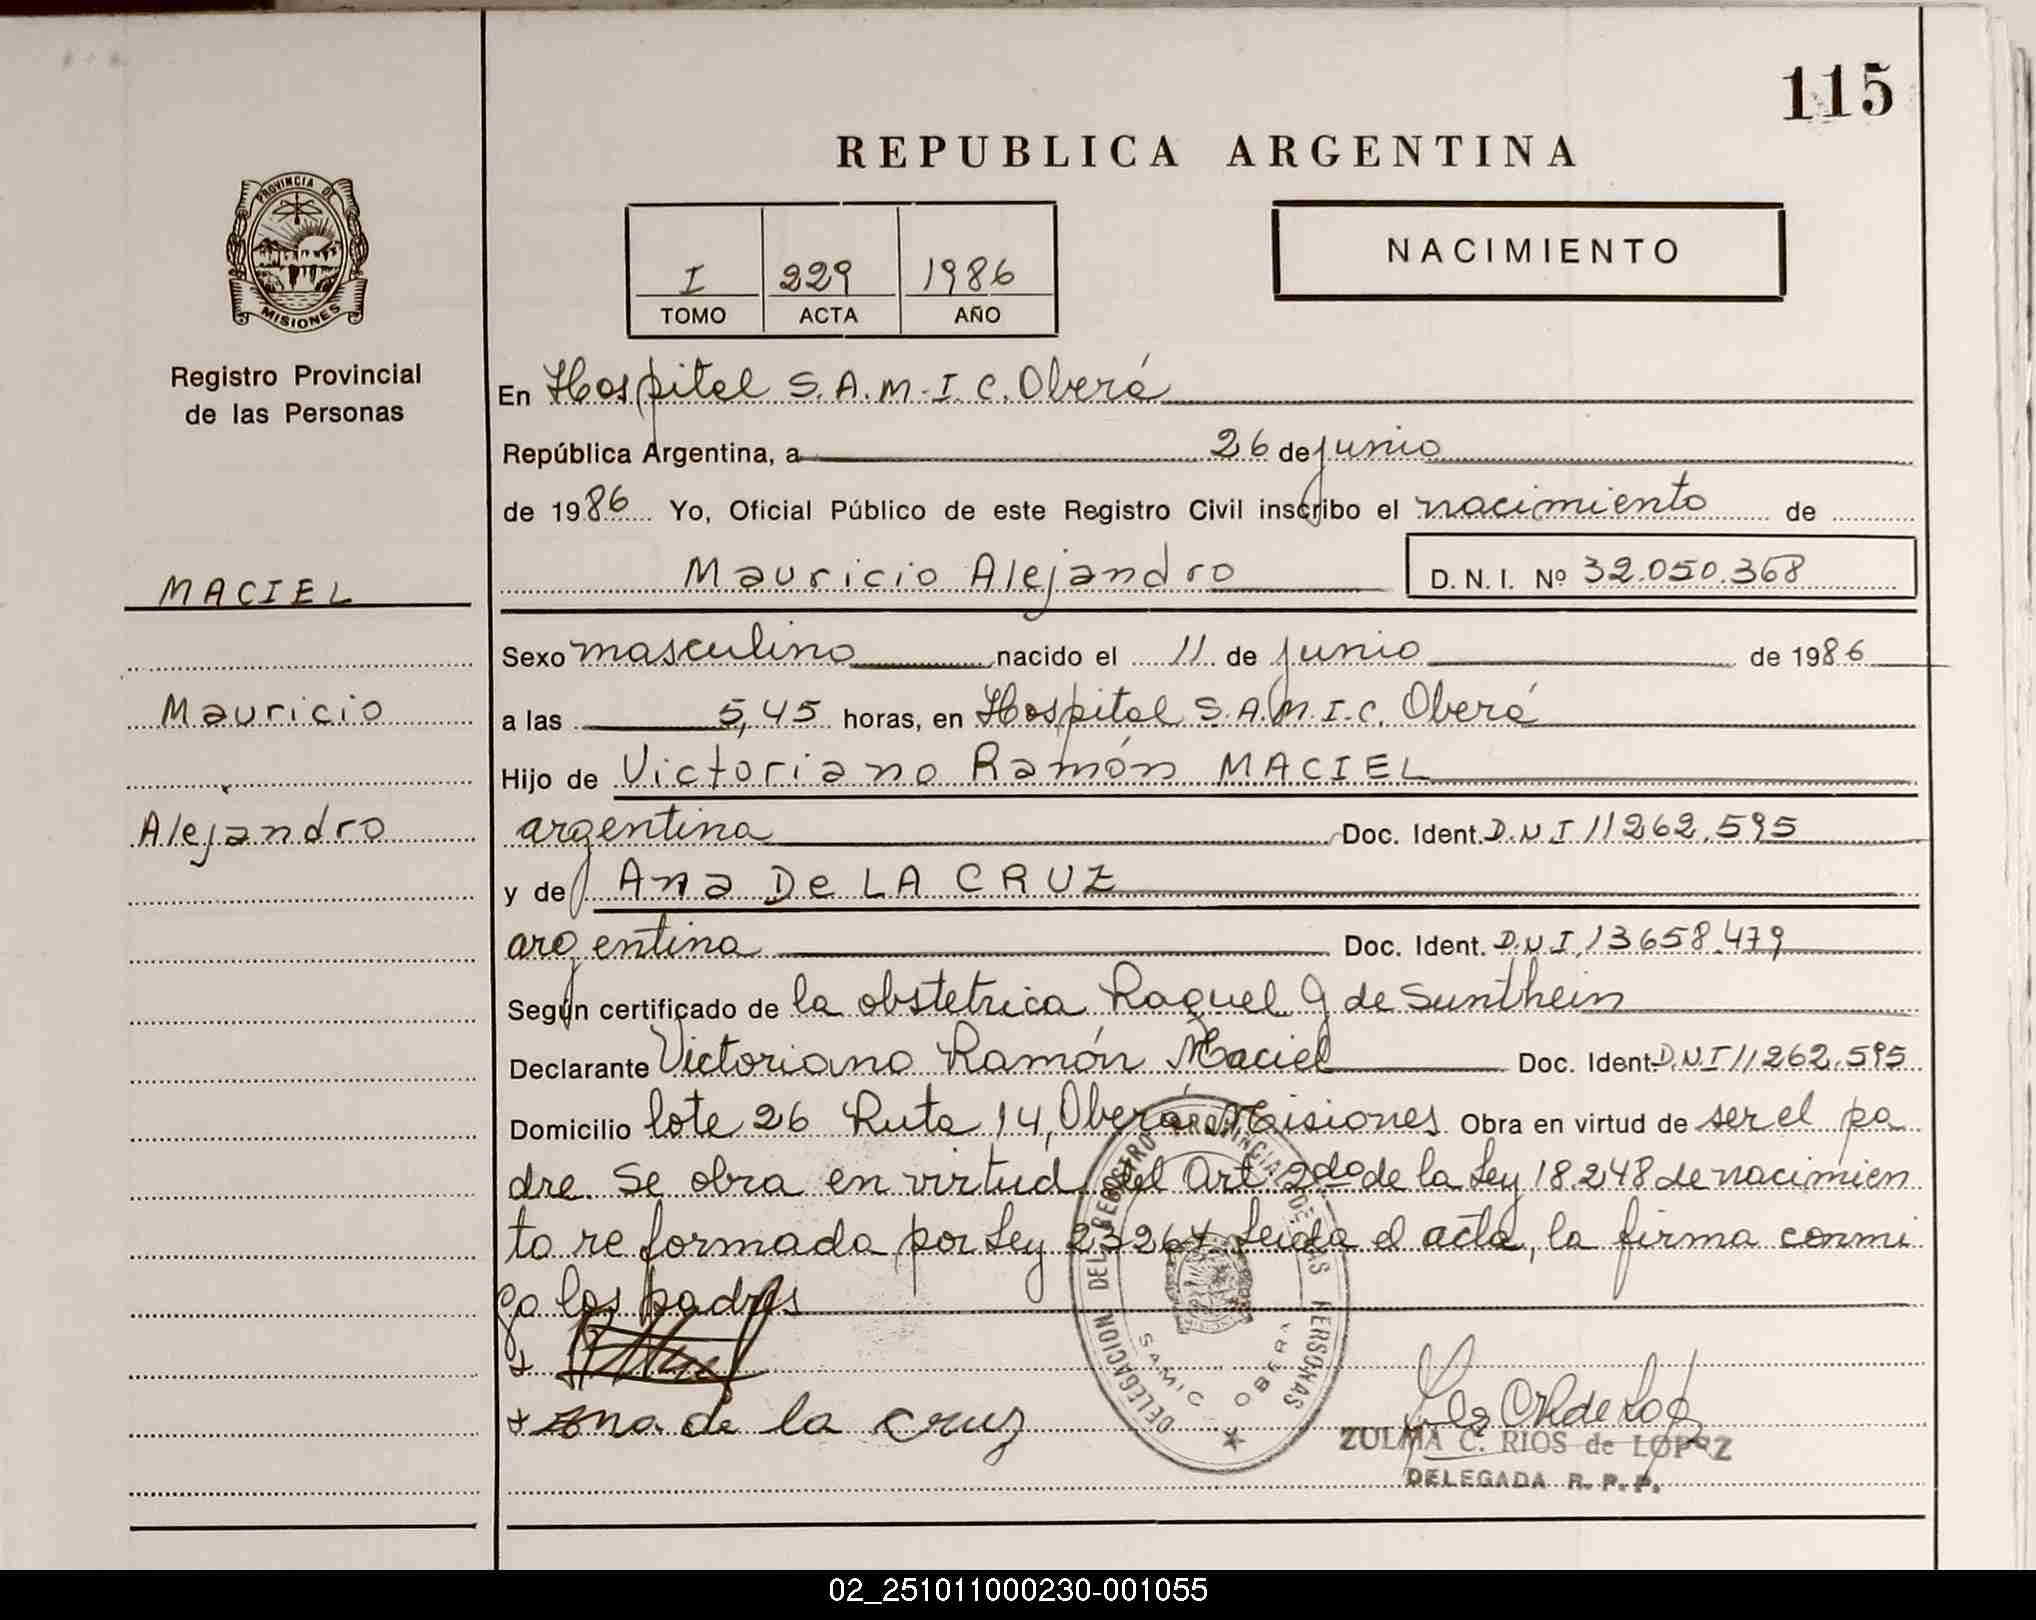 115
REPUBLICA ARGENTINA
PROVINCIA DE
MISIONES
Registro Provincial
de las Personas
I 229 1986
TOMO ACTA AÑO
NACIMIENTO
En Hospital S.A.M.I.C. Oberá
República Argentina, a 26 de junio
de 1986 Yo, Oficial Público de este Registro Civil inscribo el nacimiento de
Mauricio Alejandro D.N.I. Nº 32.050.368
MACIEL
Mauricio
Alejandro
Sexo masculino nacido el 11 de junio de 1986
a las 5,45 horas, en Hospital S.A.M.I.C. Oberá
Hijo de Victoriano Ramón MACIEL
argentina Doc. Ident. D.N.I 11262.595
y de Ana De LA CRUZ
argentina Doc. Ident. D.N.I. 13658.479
Según certificado de la obstetrica Raquel G de Sunthein
Declarante Victoriano Ramón Maciel Doc. Ident. D.N.I 11262.595
Domicilio lote 26 Ruta 14, Oberá Misiones Obra en virtud de ser el pa
dre. Se obra en virtud del Art. 2do de la Ley 18.248 de nacimien
to reformada por Ley 23264. Leida el acta, la firma conmi
go los padres
Ana de la cruz
DELEGACION DEL REGISTRO PROVINCIAL DE LAS PERSONAS
SAMIC OBERA
ZULMA C. RIOS de LOPEZ
DELEGADA R. P. P.
02_251011000230-001055